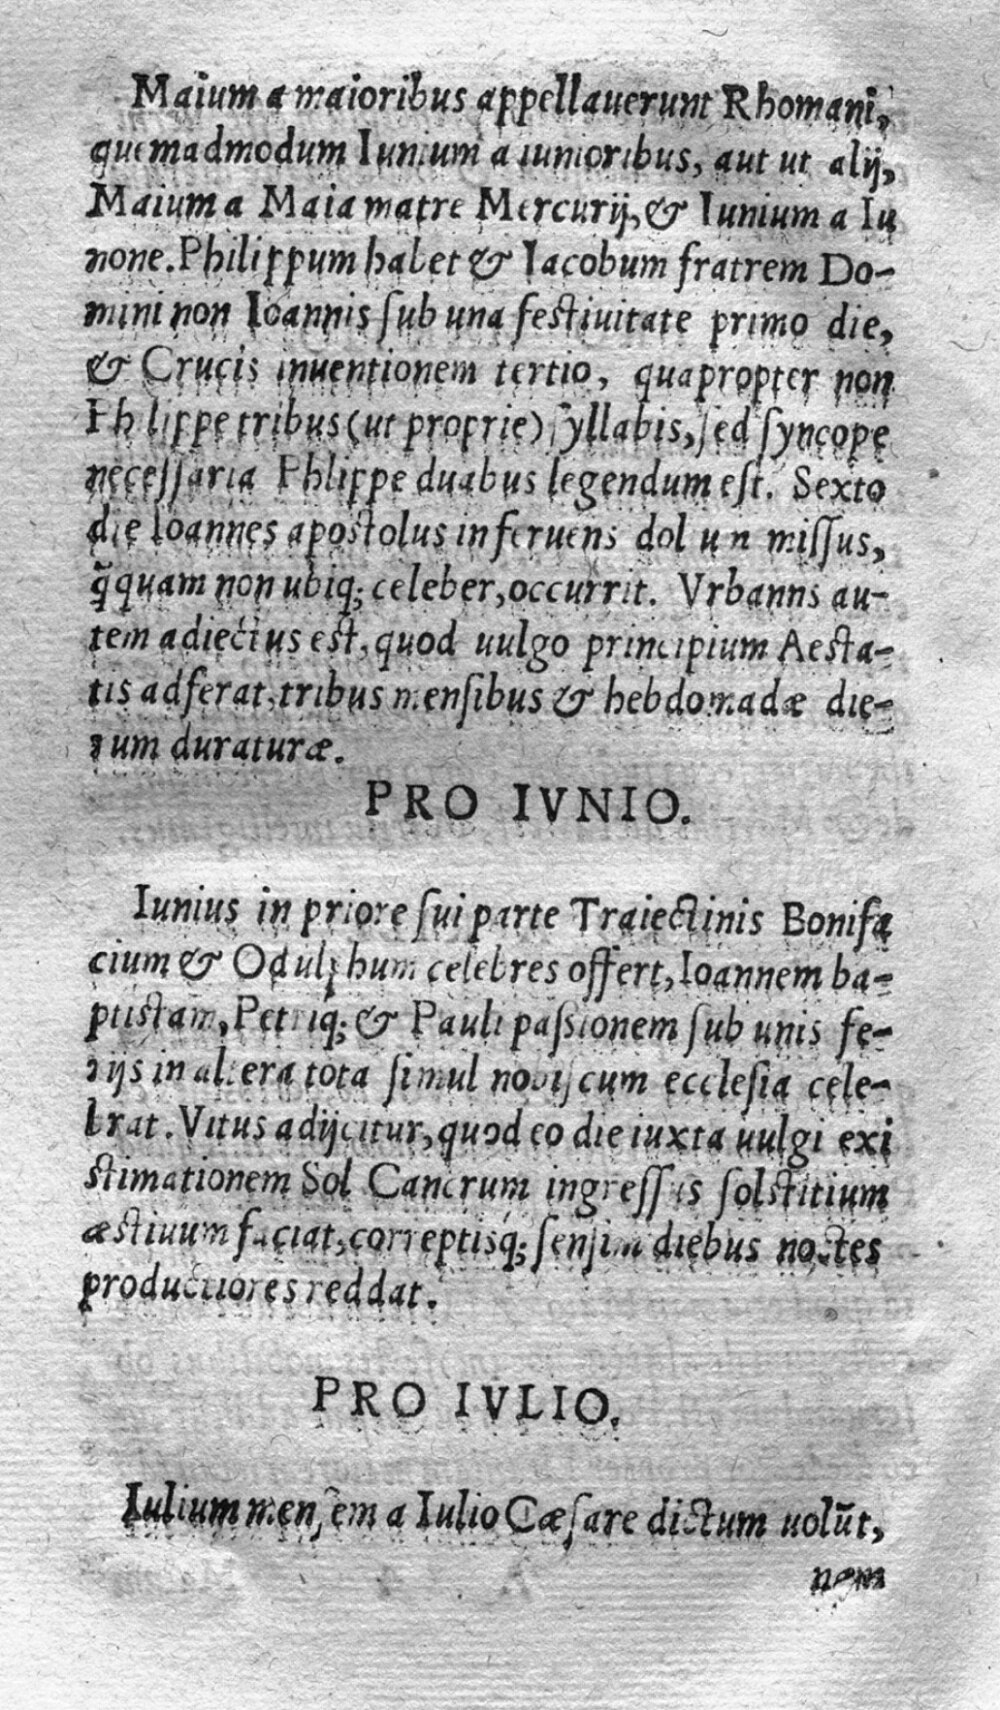 Maium a maioribus appellauerunt Rhomani,
quemadmodum Iunium a iunioribus, aut ut alij,
Maium a Maia matre Mercurij, & Iunium a Iu
none. Philippum habet & Iacobum fratrem Do-
mini non Ioannis sub una festiuitate primo die,
& Crucis inuentionem tertio, quapropter non
Philippe tribus (ut proprie) syllabis, sed syncope
necessaria Phlippe duabus legendum est. Sexto
die Ioannes apostolus in feruens dolium missus,
q̃quam non ubiq; celeber, occurrit. Vrbanns au-
tem adiectus est, quod uulgo principium Aesta-
tis adferat, tribus mensibus & hebdomadæ die-
rum duraturæ.
PRO IVNIO.
Iunius in priore sui parte Traiectinis Bonifa
cium & Odulphum celebres offert, Ioannem ba-
ptistam, Petriq; & Pauli passionem sub unis fe-
rijs in altera tota simul nobiscum ecclesia cele-
brat. Vitus adijcitur, quod eo die iuxta uulgi exi
stimationem Sol Cancrum ingressus solstitium
æstiuum faciat, correptisq; sensim diebus noctes
productiores reddat.
PRO IVLIO.
Iulium mensem a Iulio Cæsare dictum uolũt,
nam